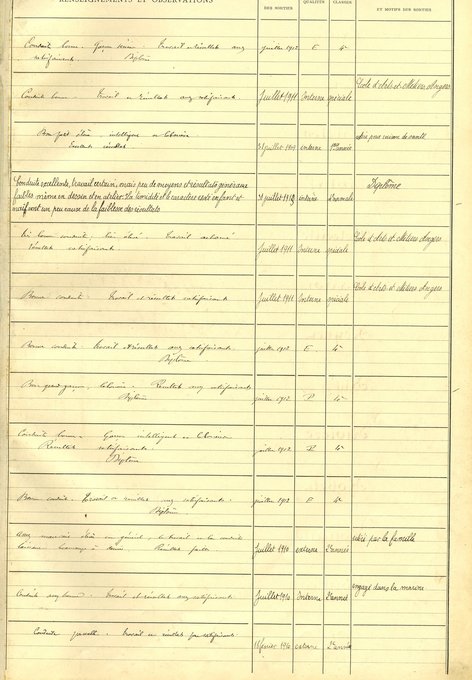 RENSEIGNEMENTS ET OBSERVATIONS
DES SORTIES
QUALITÉS
CLASSES
ET MOTIFS DES SORTIES
Conduite bonne. Travail et résultats assez
satisfaisants Diplôme
juillet 1912 E 4e
Conduite bonne Travail et résultats assez satisfaisants
juillet 1911 Interne spéciale
Ecole d'Arts et Métiers Angers
Bon petit élève intelligent et laborieux.
Excellents résultats
31 juillet 1909 interne 1ère année
pour raison de santé
Conduite excellente, travail certain, mais peu de moyens et résultats généraux
faibles même en dessin et en atelier. Sa timidité et le caractère resté enfant et
un peu cause de la faiblesse des résultats
juillet 1913 interne normale
Diplôme
Très bonne conduite Très élevé Travail acharné
Résultats satisfaisants
juillet 1911 Interne spéciale
Ecole d'Arts et Métiers Angers
Bonne conduite Travail et résultats satisfaisants
juillet 1911 Interne spéciale
Ecole d'Arts et Métiers Angers
Bonne conduite Travail et résultats assez satisfaisants.
Diplôme
juillet 1912 E. 4e
Bon grand garçon, laborieux. Résultats assez satisfaisants
Diplôme
juillet 1912 4e
Conduite bonne. Garçon intelligent et laborieux
Résultats satisfaisants.
Diplôme
juillet 1912 4e
Bonne conduite. Travail et résultats assez satisfaisants.
Diplôme
juillet 1912 4e
Assez mauvais élève en général, le travail et la conduite
laissaient beaucoup à désirer Résultats faibles
juillet 1910 externe 2e année
retiré par la famille
Conduite assez bonne Travail et résultats assez satisfaisants
juillet 1910 Interne 2e année
engagé dans la marine
Conduite passable. Travail et résultats peu satisfaisants.
18 février 1910 externe 2e année